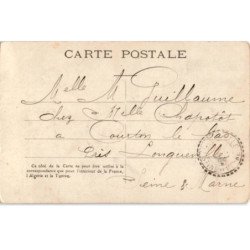 CARTE POSTALE
Melle M Guillaume
chez Melle
à Courton le Bas
près Longueville
Seine & Marne
Ce côté de la Carte ne peut être utilisé à la
correspondance que pour l'intérieur de la France,
l'Algérie et la Tunisie.